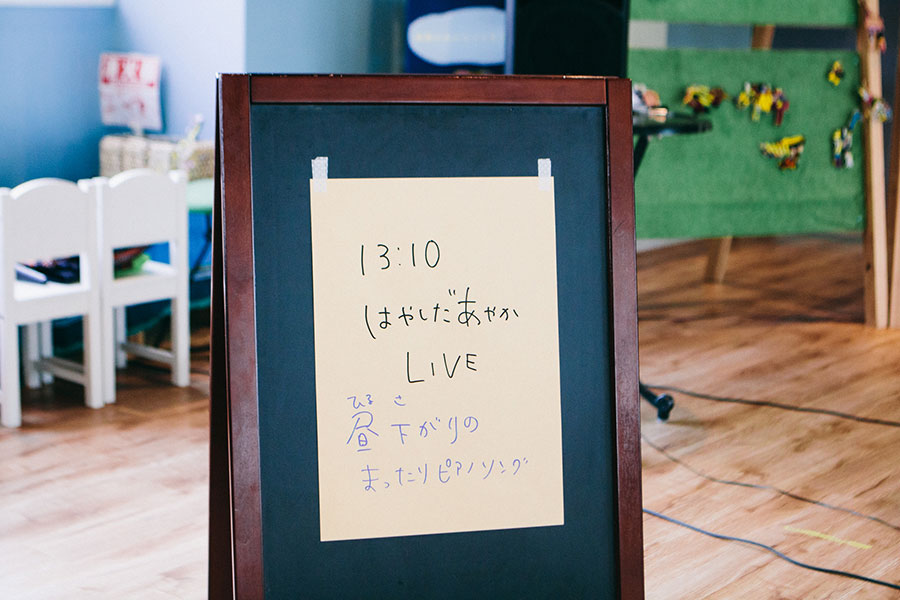 13:10
はやしだあやか
LIVE
ひる さ
昼下がりの
まったりピアノソング